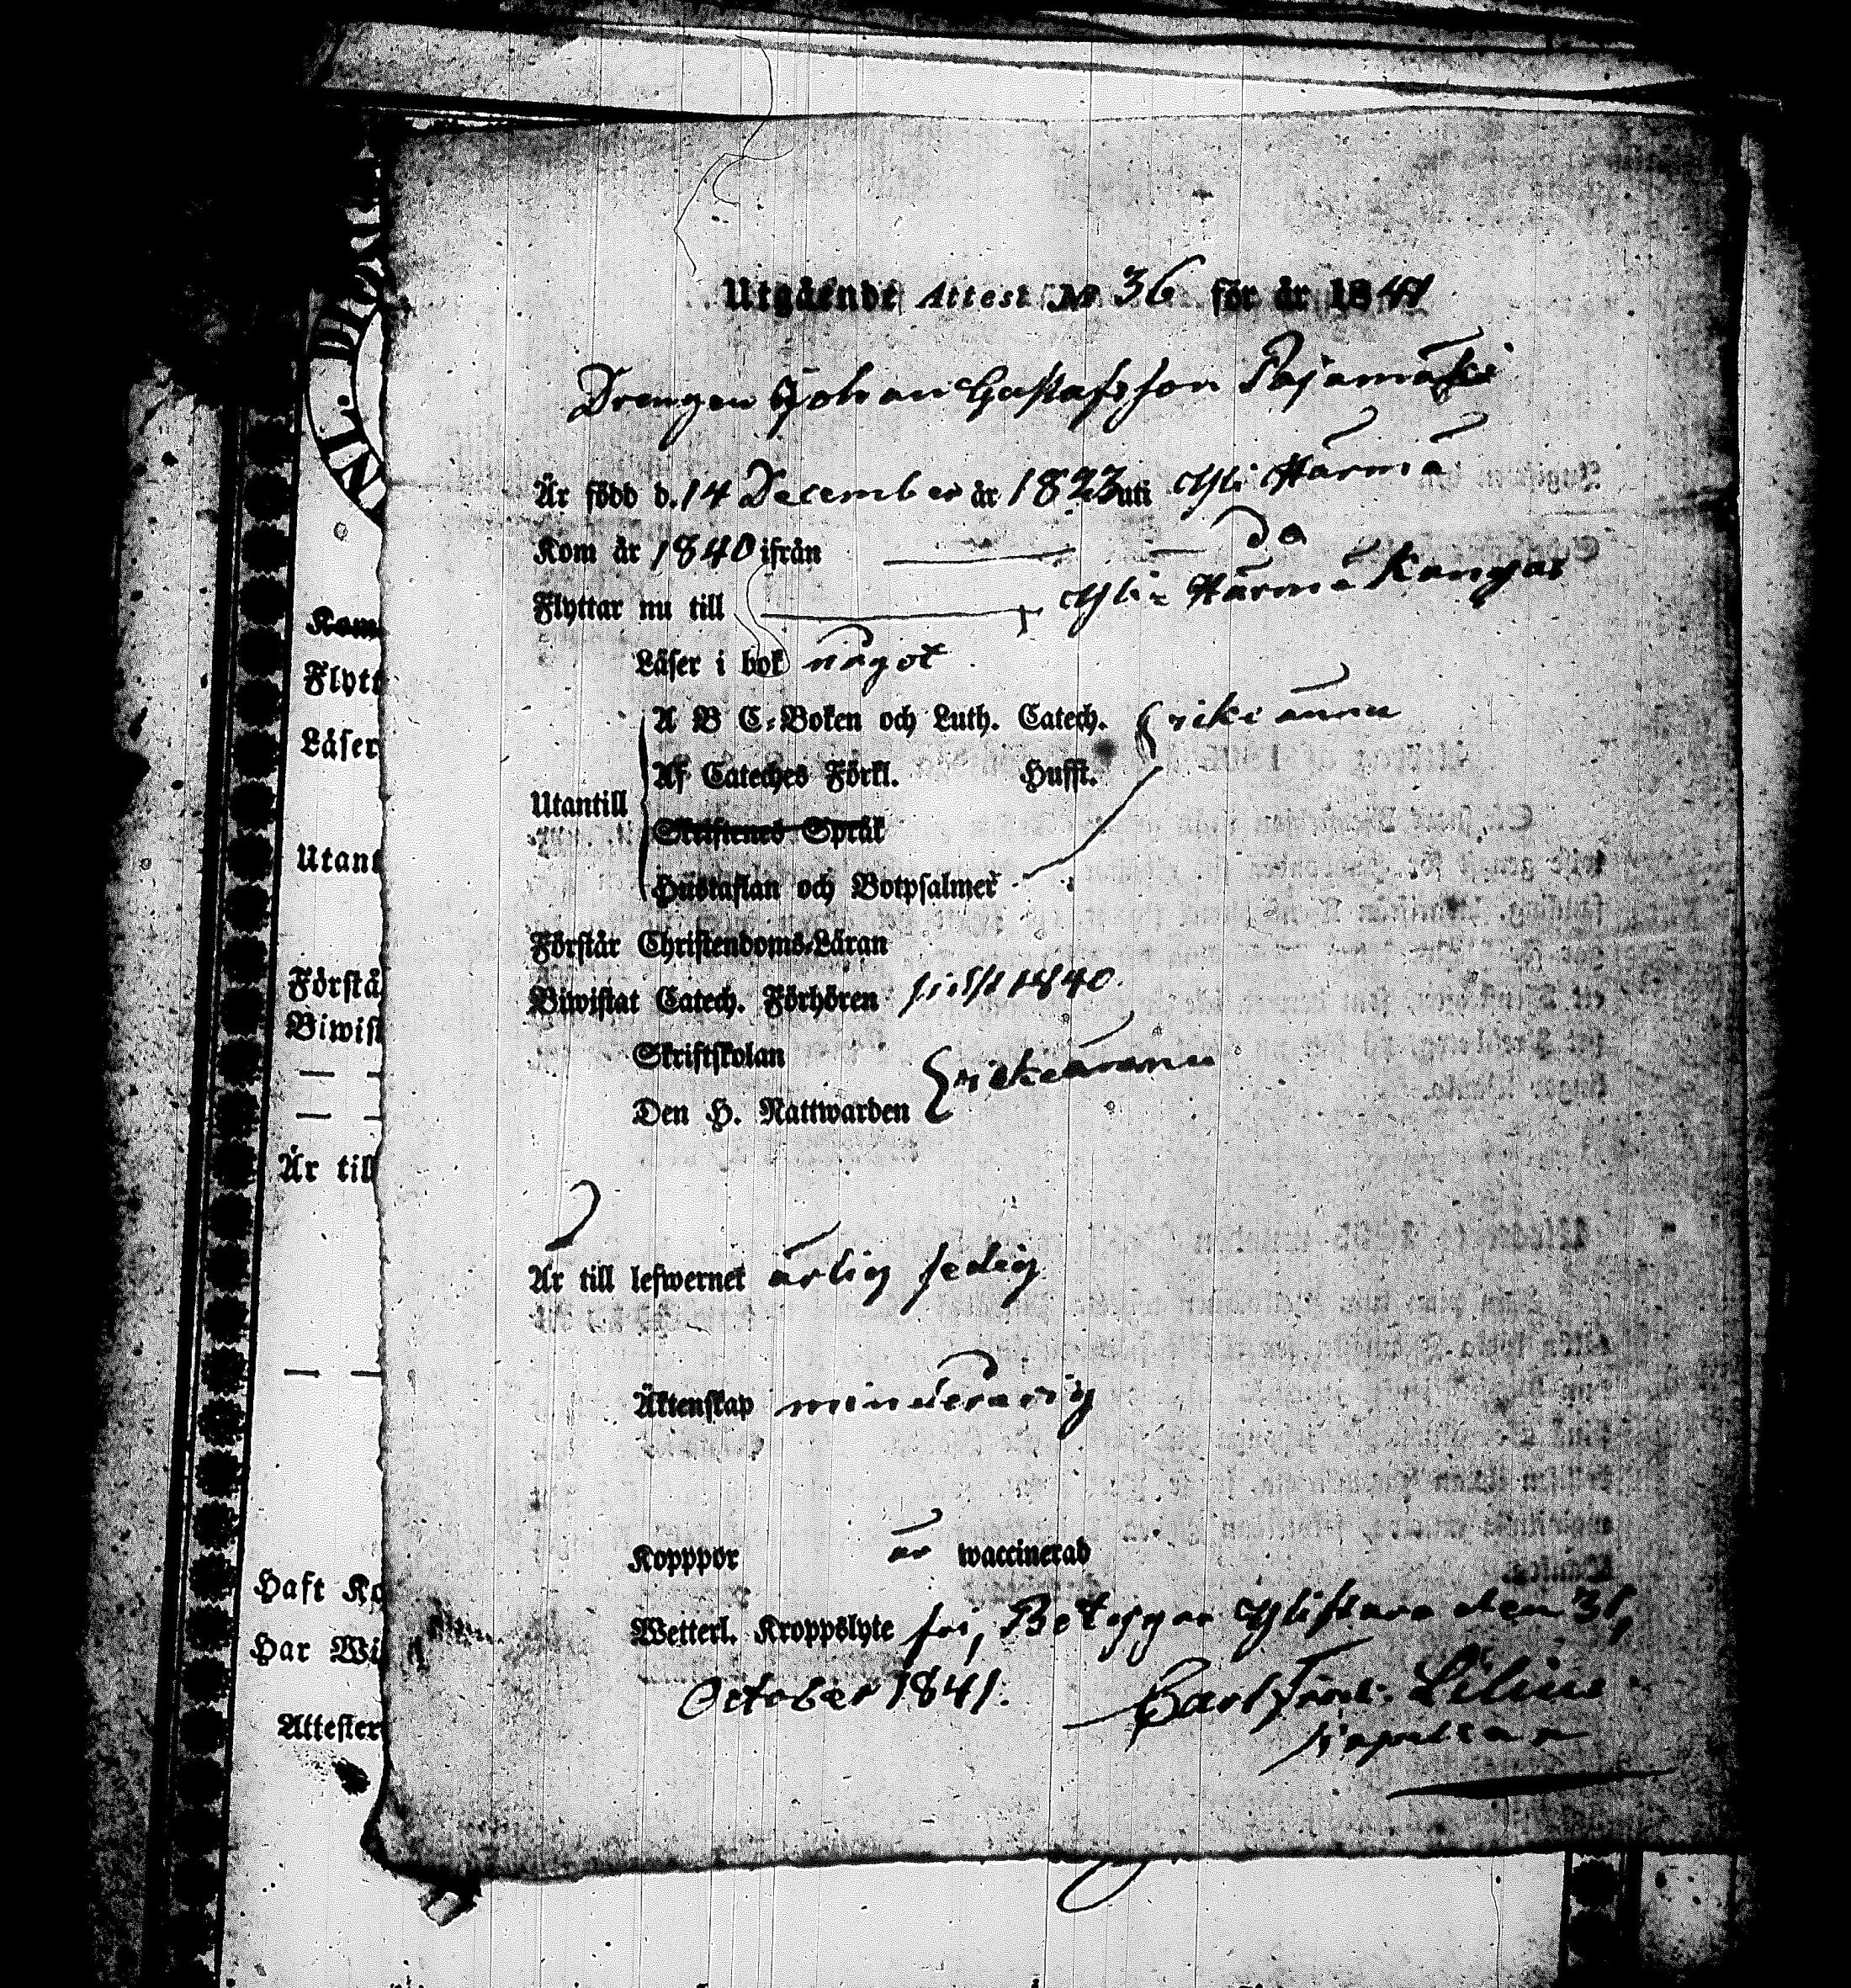 Utgående Attest No 36 för år 1841
Drengen Johan Gustafsson Pajamäki
Är född d. 14 December år 1823 uti Yli Härmä
Kom år 1840 ifrån — — do
Flyttar nu till — Yli-Härmä Kangas
Läser i bok något
A B C-Boken och Luth. Catech. } icke ännu
Af Cateches Förkl. Husft.
Utantill
Skriftenes Språk
Hustaflan och Botpsalmer
Förstår Christendoms-Läran
Biwistat Catech. Förhören sist 1840.
Skriftskolan
Den H. Nattwarden } icke ännu
Är till lefwernet ärlig sedig
Äktenskap minderårig
Kopppor är waccinerad
Wetterl. Kroppslyte fri, Betygar Ylistaro den 31,
October 1841. Carl Fredr. Lilius
Kapellan
Kom
Flytt
Läser
Utant
Förstå
Biwist
Är till
Haft Ko
Har Wi
Attester